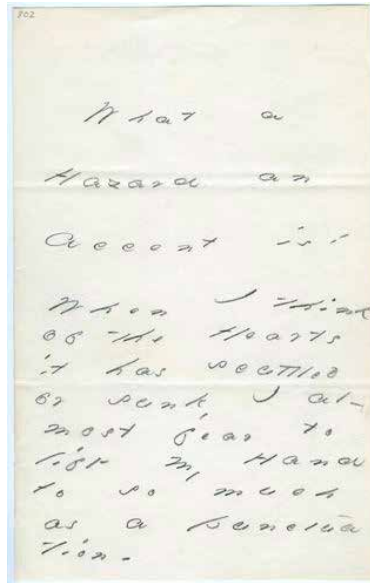 802
What a
Hazard an
Accent is!
When I think
of the Hearts
it has scuttled
or sunk, I al-
most fear to
lift my Hand
to so much
as a punctua
tion.